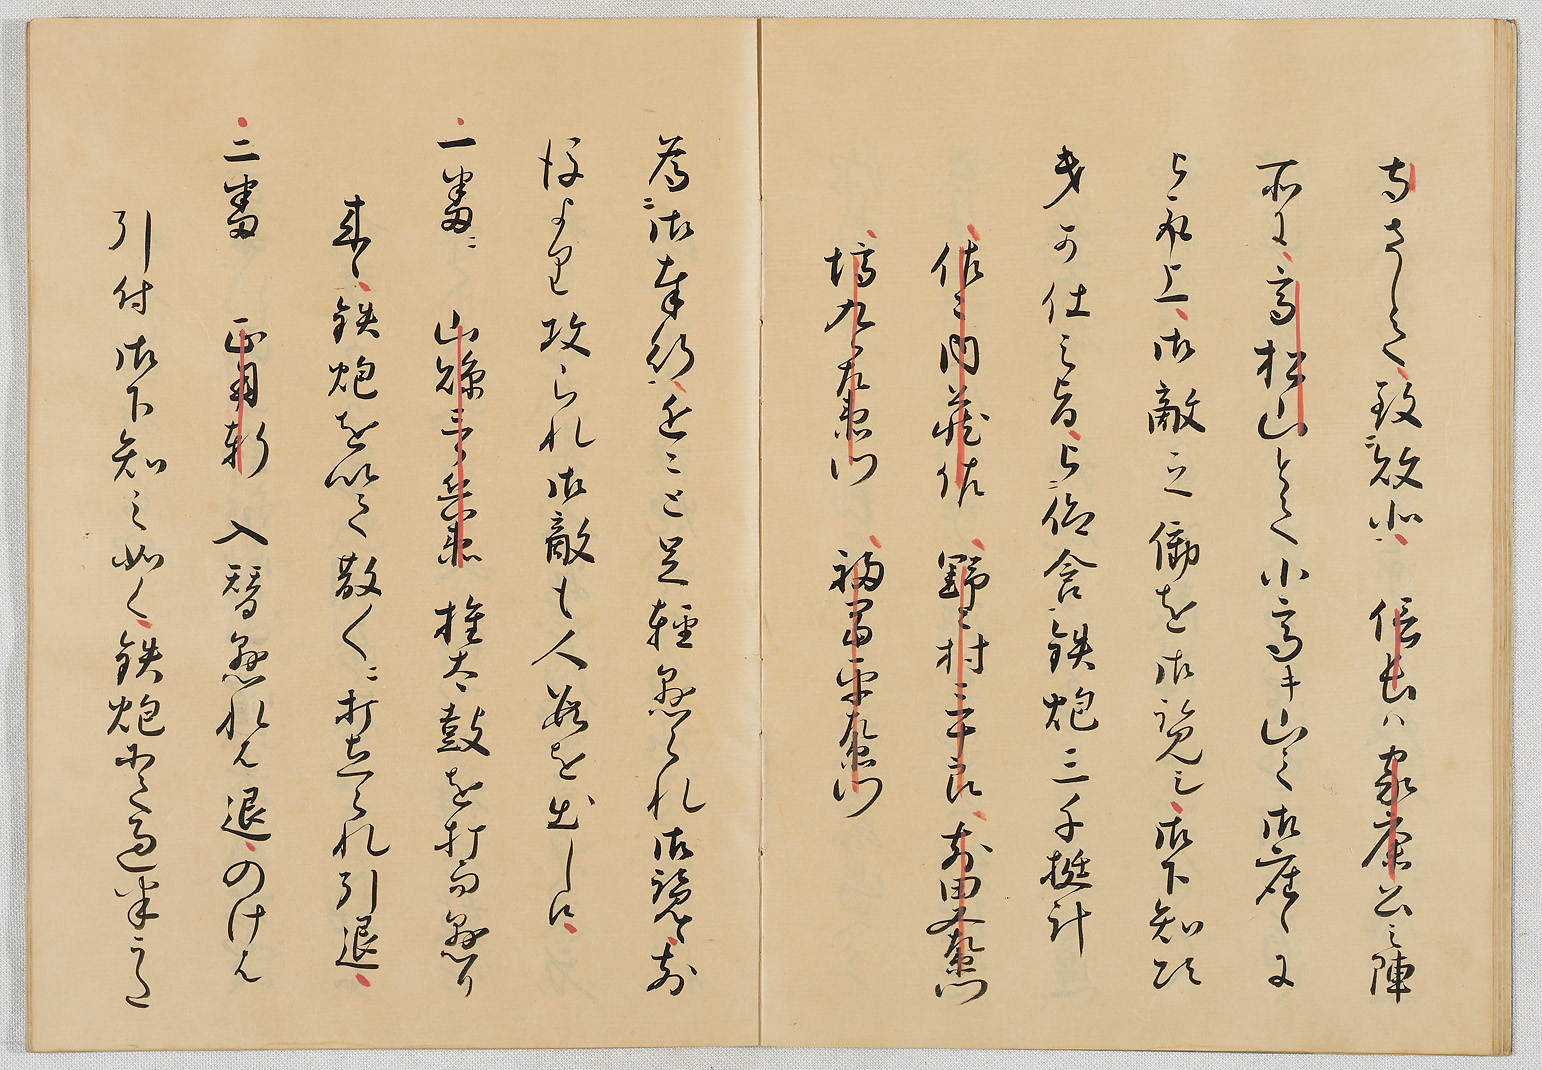 寺さして致ニ敗北一信長ハ家康公之陣
所に高松山とて小高キ山之御座候に
被取上御敵之働を御覧し御下知次
第可仕之旨被ニ仰含一鉄炮三千挺計
佐々内蔵佐 野々村三十良 前田又左衛門
塙九郎左衛門 福冨平左衛門
為ニ御奉行一近々と足軽懸られ御覧候前
後より攻られ御敵も人数を出し候
一番ニ 山縣三郎兵衛 推太鼓を打而懸り
来候鉄炮を以て散々ニ打立られ引退
二番 正用軒 入替懸れハ退のけハ
引付御下知之如く鉄炮にて過半うた